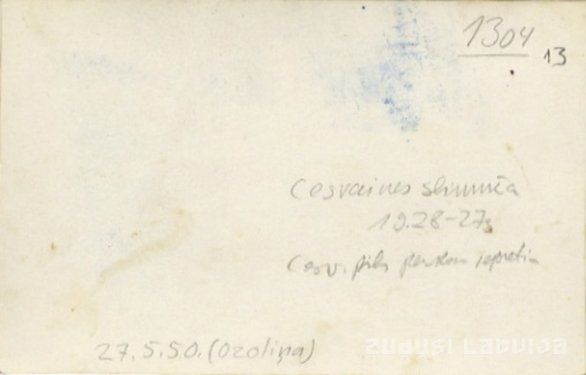 1304
13
Cesvaines slimnīca
19.28-27
Cesv. pils
27.5.50. (Ozoliņa)
zudusi Latvija